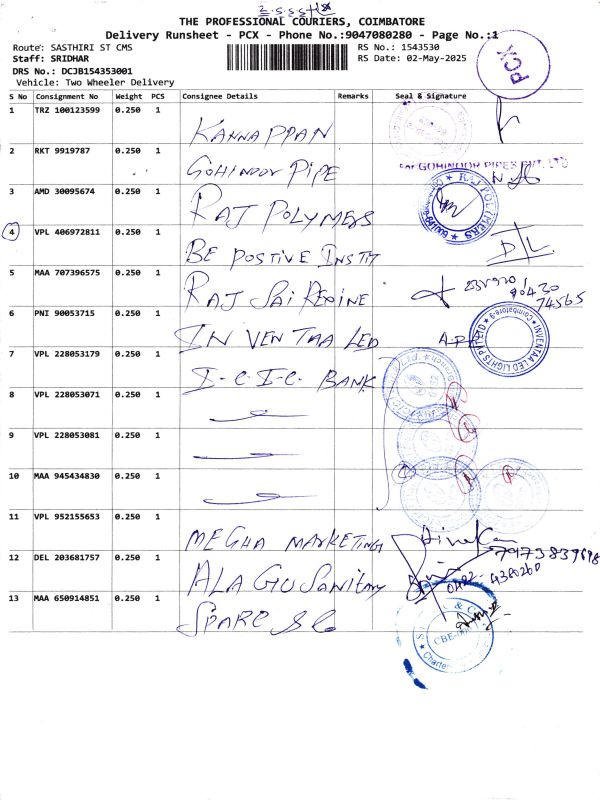 THE PROFESSIONAL COURIERS, COIMBATORE
Delivery Runsheet - PCX - Phone No.:9047080280 - Page No.:1
Route: SASTHIRI ST CMS
RS No.: 1543530
Staff: SRIDHAR
RS Date: 02-May-2025
DRS No.: DCJB154353001
Vehicle: Two Wheeler Delivery
PCX
S No Consignment No Weight PCS Consignee Details Remarks Seal & Signature
1 TRZ 100123599 0.250 1 KANNAPPAN
2 RKT 9919787 0.250 1 GOHINOOR PIPE
For GOHINOOR PIPES PVT. LTD
3 AMD 30095674 0.250 1 RAJ POLYMERS
RAJ POLYMERS
4 VPL 406972811 0.250 1 BE POSTIVE INSTIT
5 MAA 707396575 0.250 1 RAJ SAI REXINE
90420
74565
6 PNI 90053715 0.250 1 INVENTAA LED
INVENTAA LED LIGHTS PVT LTD Coimbatore-9
7 VPL 228053179 0.250 1 I-C-I-C- BANK
8 VPL 228053071 0.250 1
9 VPL 228053081 0.250 1
10 MAA 945434830 0.250 1
11 VPL 952155653 0.250 1 MEGHA MARKETING
12 DEL 203681757 0.250 1 ALAGU Sanitary
13 MAA 650914851 0.250 1 SPARE
CBE-